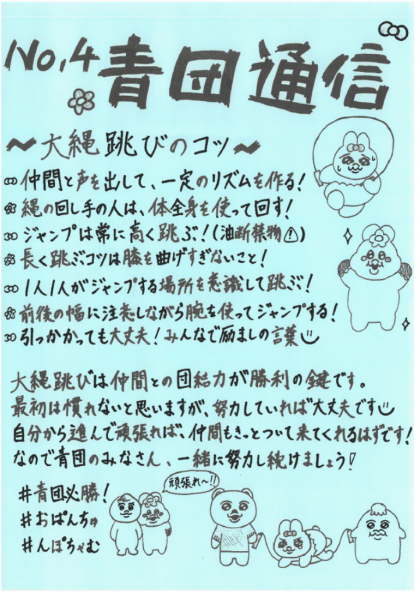 No,4
青団通信
~大縄跳びのコツ~
仲間と声を出して、一定のリズムを作る!
縄の回し手の人は、体全身を使って回す!
ジャンプは常に高く跳ぶ!(油断禁物!)
長く跳ぶコツは膝を曲げすぎないこと!
1人1人がジャンプする場所を意識して跳ぶ!
前後の幅に注意しながら腕を使ってジャンプする!
引っかかっても大丈夫!みんなで励ましの言葉
大縄跳びは仲間との団結力が勝利の鍵です。
最初は慣れないと思いますが、努力していれば大丈夫です
自分から進んで頑張れば、仲間もきっとついて来てくれるはずです!
なので青団のみなさん、一緒に努力し続けましょう!
頑張れ〜!!
#青団必勝!
#おぱんちゅ
#んぽちゃむ